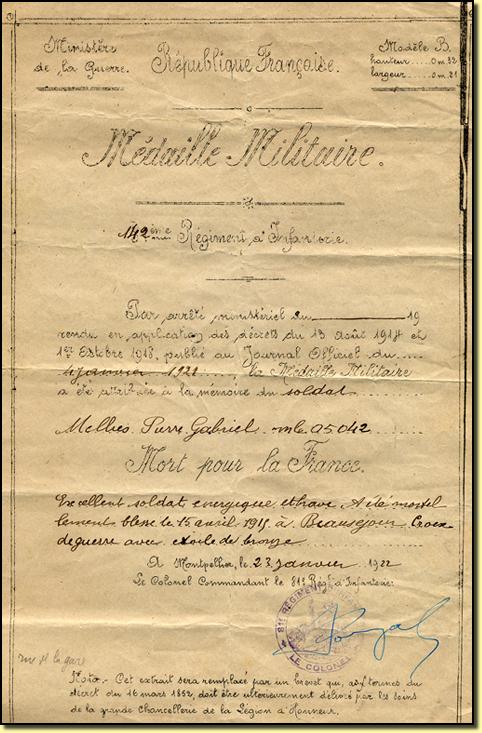 Ministère
de la Guerre.
République Française.
Modèle B.
hauteur.....0m32
largeur.....0m21
Médaille Militaire.
142ème Régiment d'Infanterie.
Par arrêté ministériel du 19
rendu en application des décrets du 13 août 1914 et
1er Octobre 1918, publié au Journal Officiel du ....
janvier 1921, la Médaille Militaire
a été attribuée à la mémoire du soldat
Pierre Gabriel mle 05042
Mort pour la France.
Excellent soldat energique et brave A été mortel
lement blesse le 15 avril 1915 à Beausejour Croix
de guerre avec etoile de bronze
A Montpellier, le 23 janvier 1922
Le Colonel Commandant le 81e Régt d'Infanterie
81e RÉGIMENT
LE COLONEL
rue de la gare
Nota.- Cet extrait sera remplacé par un brevet qui, aux termes du
décret du 16 mars 1852, doit être ultérieurement délivré par les soins
de la grande Chancellerie de la Légion d'Honneur.